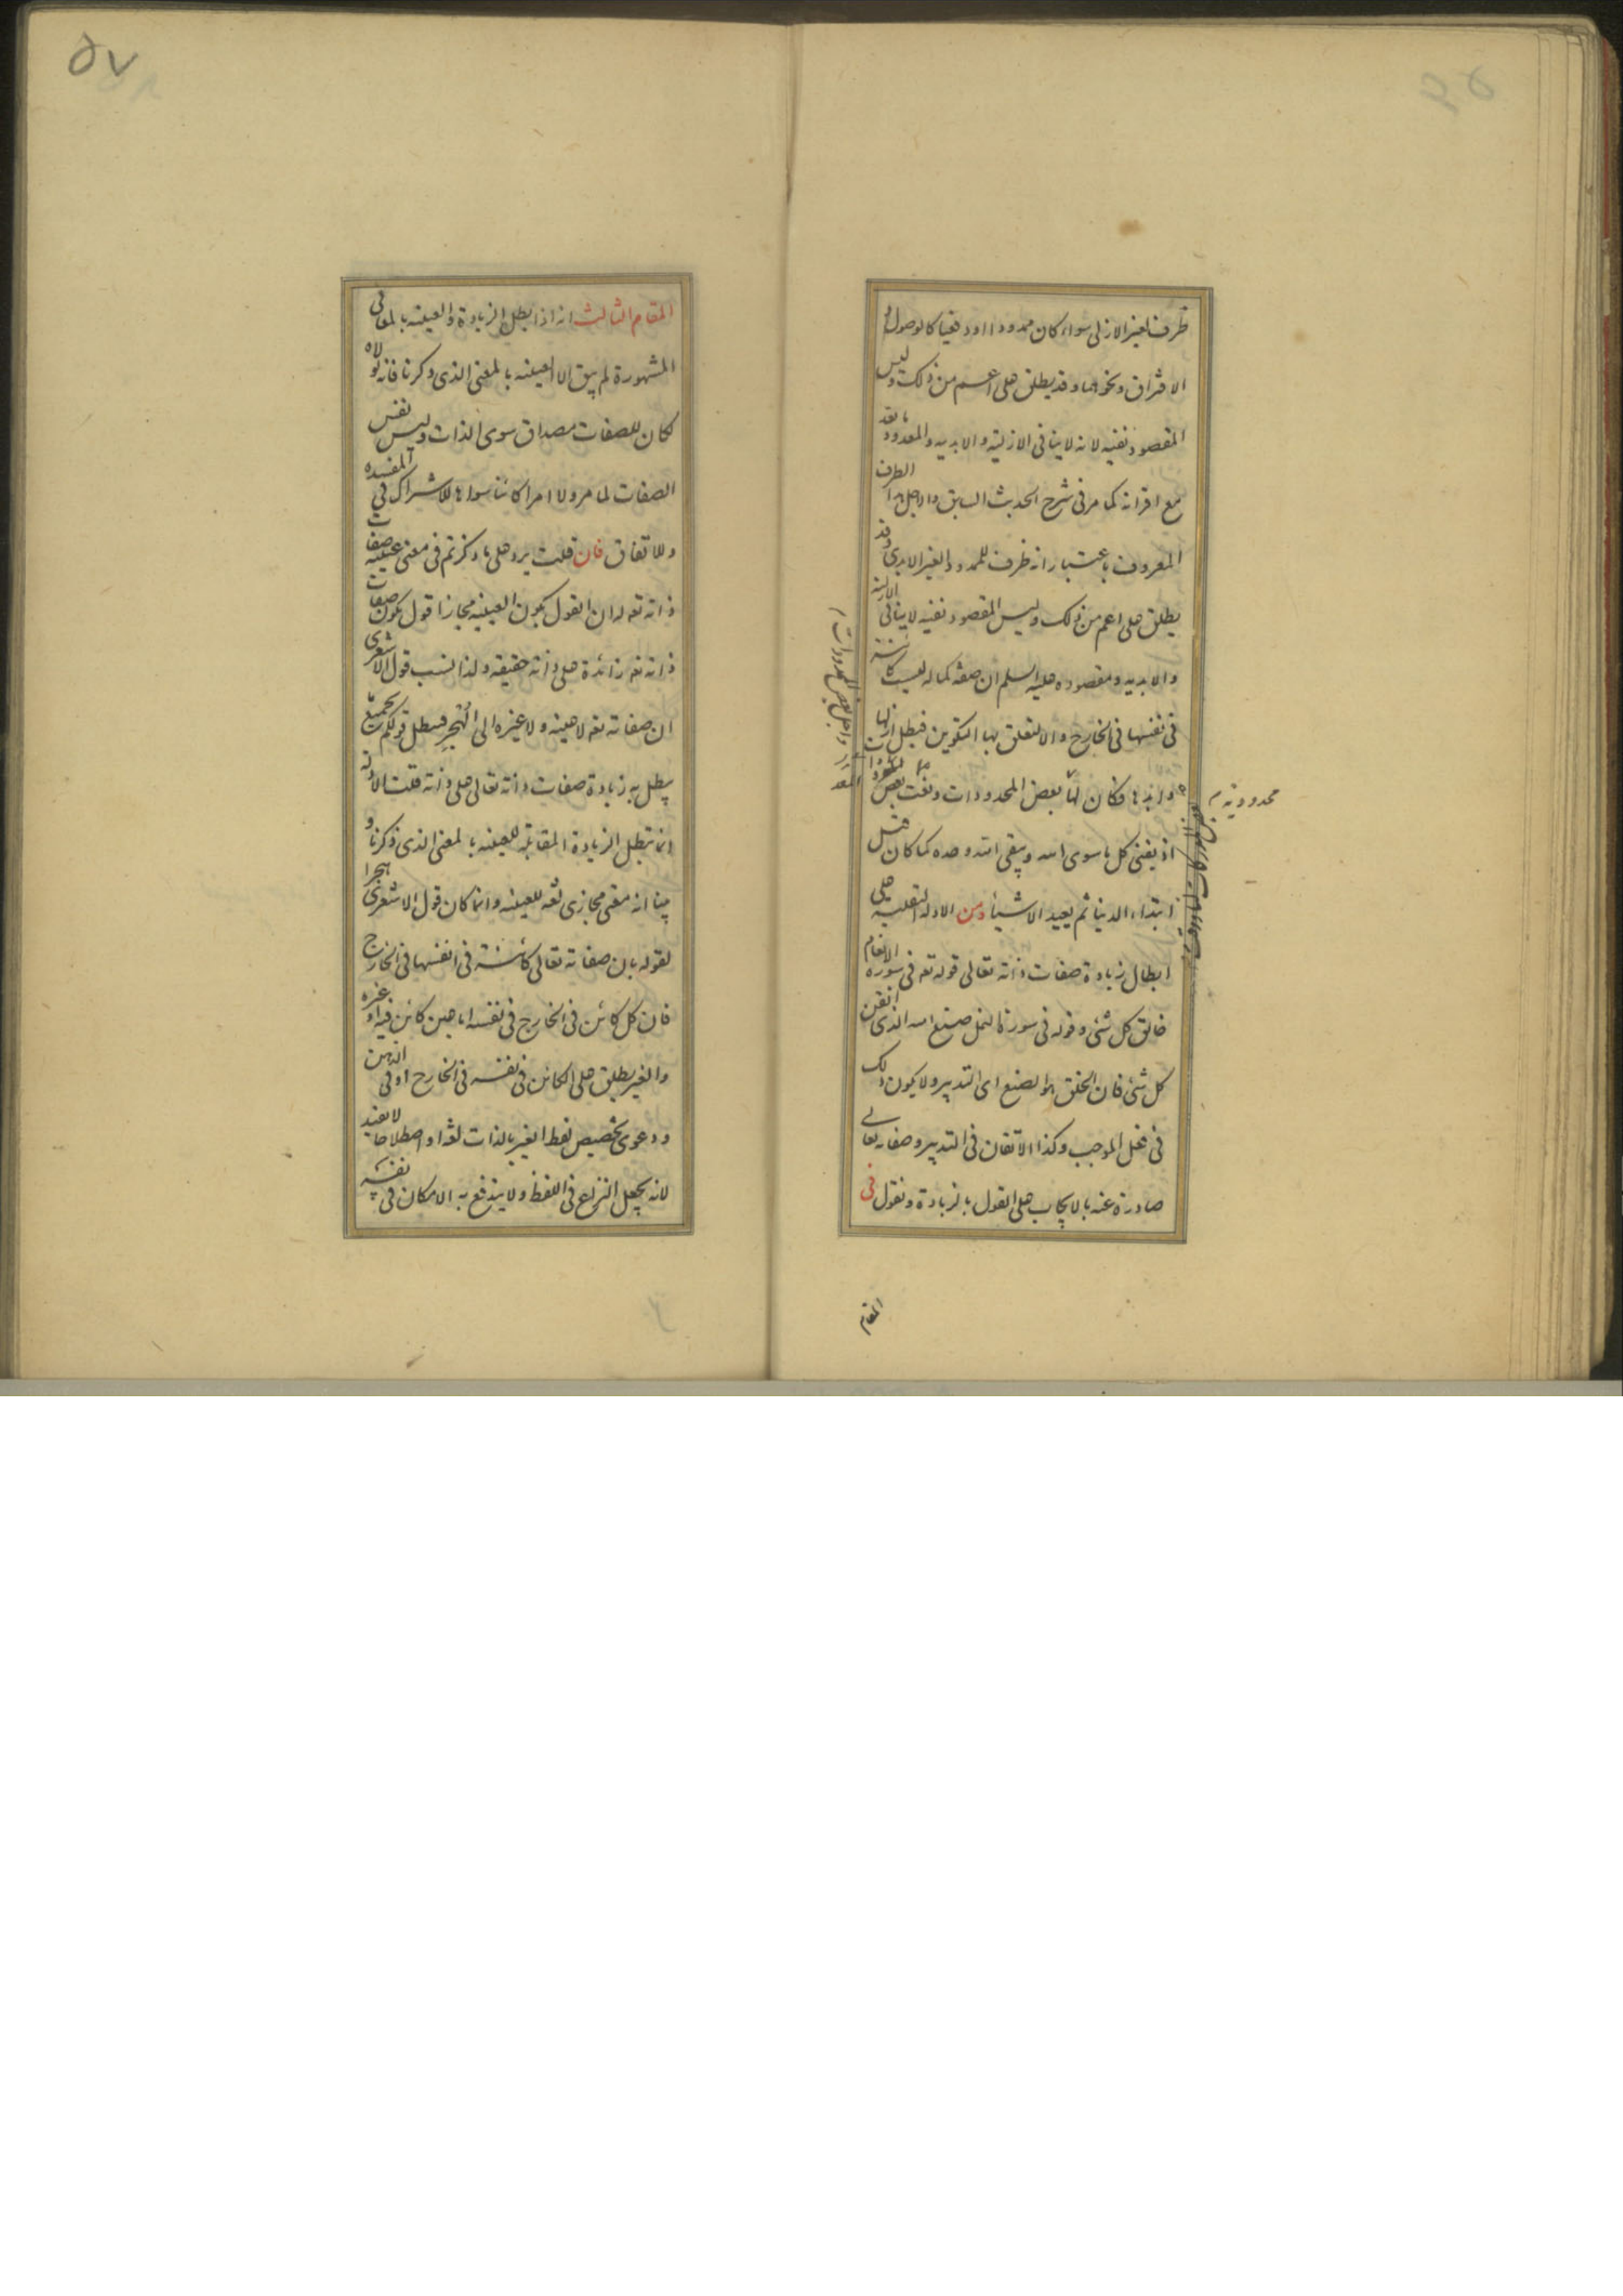 ظرف لغير الازلى سواء كان ممدودا او دفعيا كالوصول و
الافتراق ونحوهما وقد يطلق على اعم من ذلك وليس
المقصود نفيه لانه لا ينافى الازلية والابدية والمعدود بعد
مع اقرانه كما مر فى شرح الحديث السابق والاجل هذا الظرف
المعروف باعتبار انه ظرف للممدود الغير الابدى وقد
يطلق على اعم من ذلك وليس المقصود نفيه لا ينافى الازلية
والابدية ومقصوده عليه السلم ان صفة كماله ليست كائنة
فى نفسها فى الخارج والا لتعلق بها التكوين فبطل ازلها
وابدها فكان لها بعض المحدودات ونعت بعض
اذ يفنى كل ما سوى الله ويبقى الله وحده كما كان قبل
ابتداء الدنيا ثم يعيد الاشياء ومن الادلة النقلية على
ابطال زيادة صفات ذاته تعالى قوله تعه فى سورة الانعام
خالق كل شئ وقوله فى سورة النمل صنع الله الذى اتقن
كل شئ فان الخلق هو الصنع اى التدبير ولا يكون ذلك
فى فعل الموجب وكذا الاتقان فى التدبير وصفاته تعالى
صادرة عنه بالايجاب على القول بالزيادة ونقول فى
محدودية م
المقام
٥٧
المقام الثالث انه اذا بطل الزيادة والعينية بالمعانى
المشهورة لم يبق الا العينية بالمعنى الذى ذكرنا فانه لولاه
لكان للصفات مصداق سوى الذات وليس نفس
الصفات لما مر ولا امرا كائنا سواها للاشتراك فى المفسدة
وللاتفاق فان قلت يرد على ما ذكرتم فى معنى عينية صفات
ذاته تعه ان القول بكون العينية مجازا قول بكون صفات
ذاته تعه زائدة على ذاته حقيقة ولذا نسب قول الاشعرى
ان صفاته تعه لا عينه ولا غيره الى الهجر فبطل قولكم بجميع
يبطل به زيادة صفات ذاته تعالى على ذاته قلت الادلة
انما تبطل الزيادة المقابلة للعينية بالمعنى الذى ذكرنا و
بينا انه معنى مجازى لغة للعينية وانما كان قول الاشعرى هجرا
لقوله بان صفاته تعالى كائنة فى انفسها فى الخارج
فان كل كائن فى الخارج فى نفسه اما عين كائن فيه او غيره
والغير يطلق على الكائن فى نفسه فى الخارج او فى الذهن
ودعوى تخصيص لفظ الغير بالذات لغة او اصطلاحا لا يفيد
لانه يجعل النزاع فى اللفظ ولا يندفع به الامكان فى نفسه